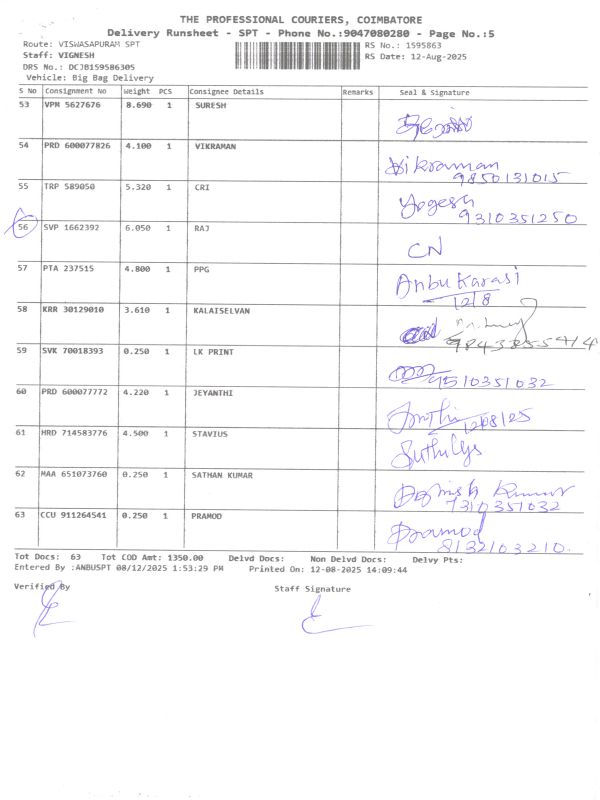 THE PROFESSIONAL COURIERS, COIMBATORE
Delivery Runsheet - SPT - Phone No.:9047080280 - Page No.:5
Route: VISWASAPURAM SPT RS No.: 1595863
Staff: VIGNESH RS Date: 12-Aug-2025
DRS No.: DCJB159586305
Vehicle: Big Bag Delivery
S No Consignment No Weight PCS Consignee Details Remarks Seal & Signature
53 VPM 5627676 8.690 1 SURESH
54 PRD 600077826 4.100 1 VIKRAMAN Vikraman
9850131015
55 TRP 589050 5.320 1 CRI Yogesh
9310351250
56 SVP 1662392 6.050 1 RAJ CN
57 PTA 237515 4.800 1 PPG Anbukarasi
12/8
58 KRR 30129010 3.610 1 KALAISELVAN
59 SVK 70018393 0.250 1 LK PRINT
9510351032
60 PRD 600077772 4.220 1 JEYANTHI
12/08/25
61 HRD 714583776 4.500 1 STAVIUS
62 MAA 651073760 0.250 1 SATHAN KUMAR Kumar
7310351032
63 CCU 911264541 0.250 1 PRAMOD Pramod
8132103210.
Tot Docs: 63 Tot COD Amt: 1350.00 Delvd Docs: Non Delvd Docs: Delvy Pts:
Entered By :ANBUSPT 08/12/2025 1:53:29 PM Printed On: 12-08-2025 14:09:44
Verified By Staff Signature